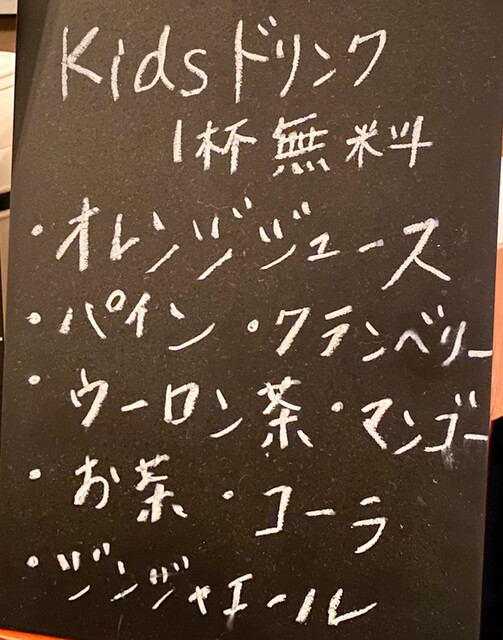 Kidsドリンク
1杯無料
・オレンジジュース
・パイン ・クランベリー
・ウーロン茶 ・マンゴー
・お茶 ・コーラ
・ジンジャエール